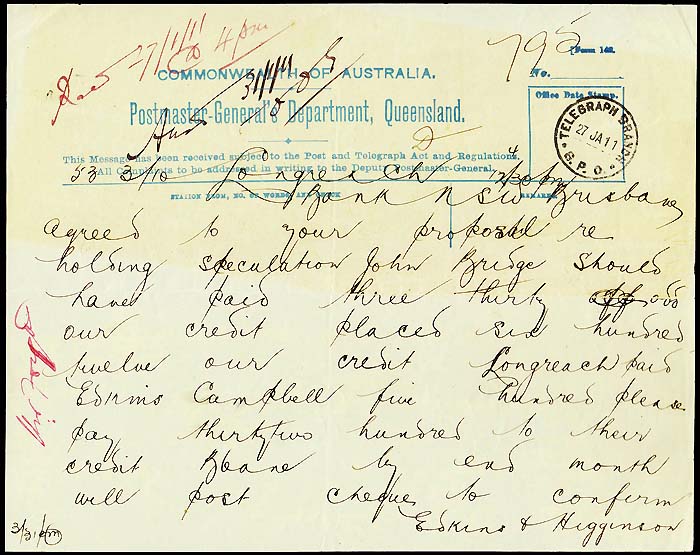 795
Form 146.
Recd 27/1/11 4 pm
31/1/11
COMMONWEALTH OF AUSTRALIA.
No.
Postmaster-General's Department, Queensland.
Office Date Stamp.
TELEGRAPH BRANCH
27 JA 11
G.P.O.
This Message has been received subject to the Post and Telegraph Act and Regulations.
All Complaints to be addressed in writing to the Deputy Postmaster-General.
53 3/10 Longreach 4
STATION FROM, NO. OF WORDS AND CHECK
REMARKS
Bank NSW Brisbane
agreed to your proposal re
holding speculation John Bridge should
have paid three thirty
our credit placed six hundred
twelve our credit Longreach paid
Edkins Campbell five hundred please
pay thirtytwo hundred to their
credit Bbane by end month
will post cheque to confirm
Edkins & Higginson